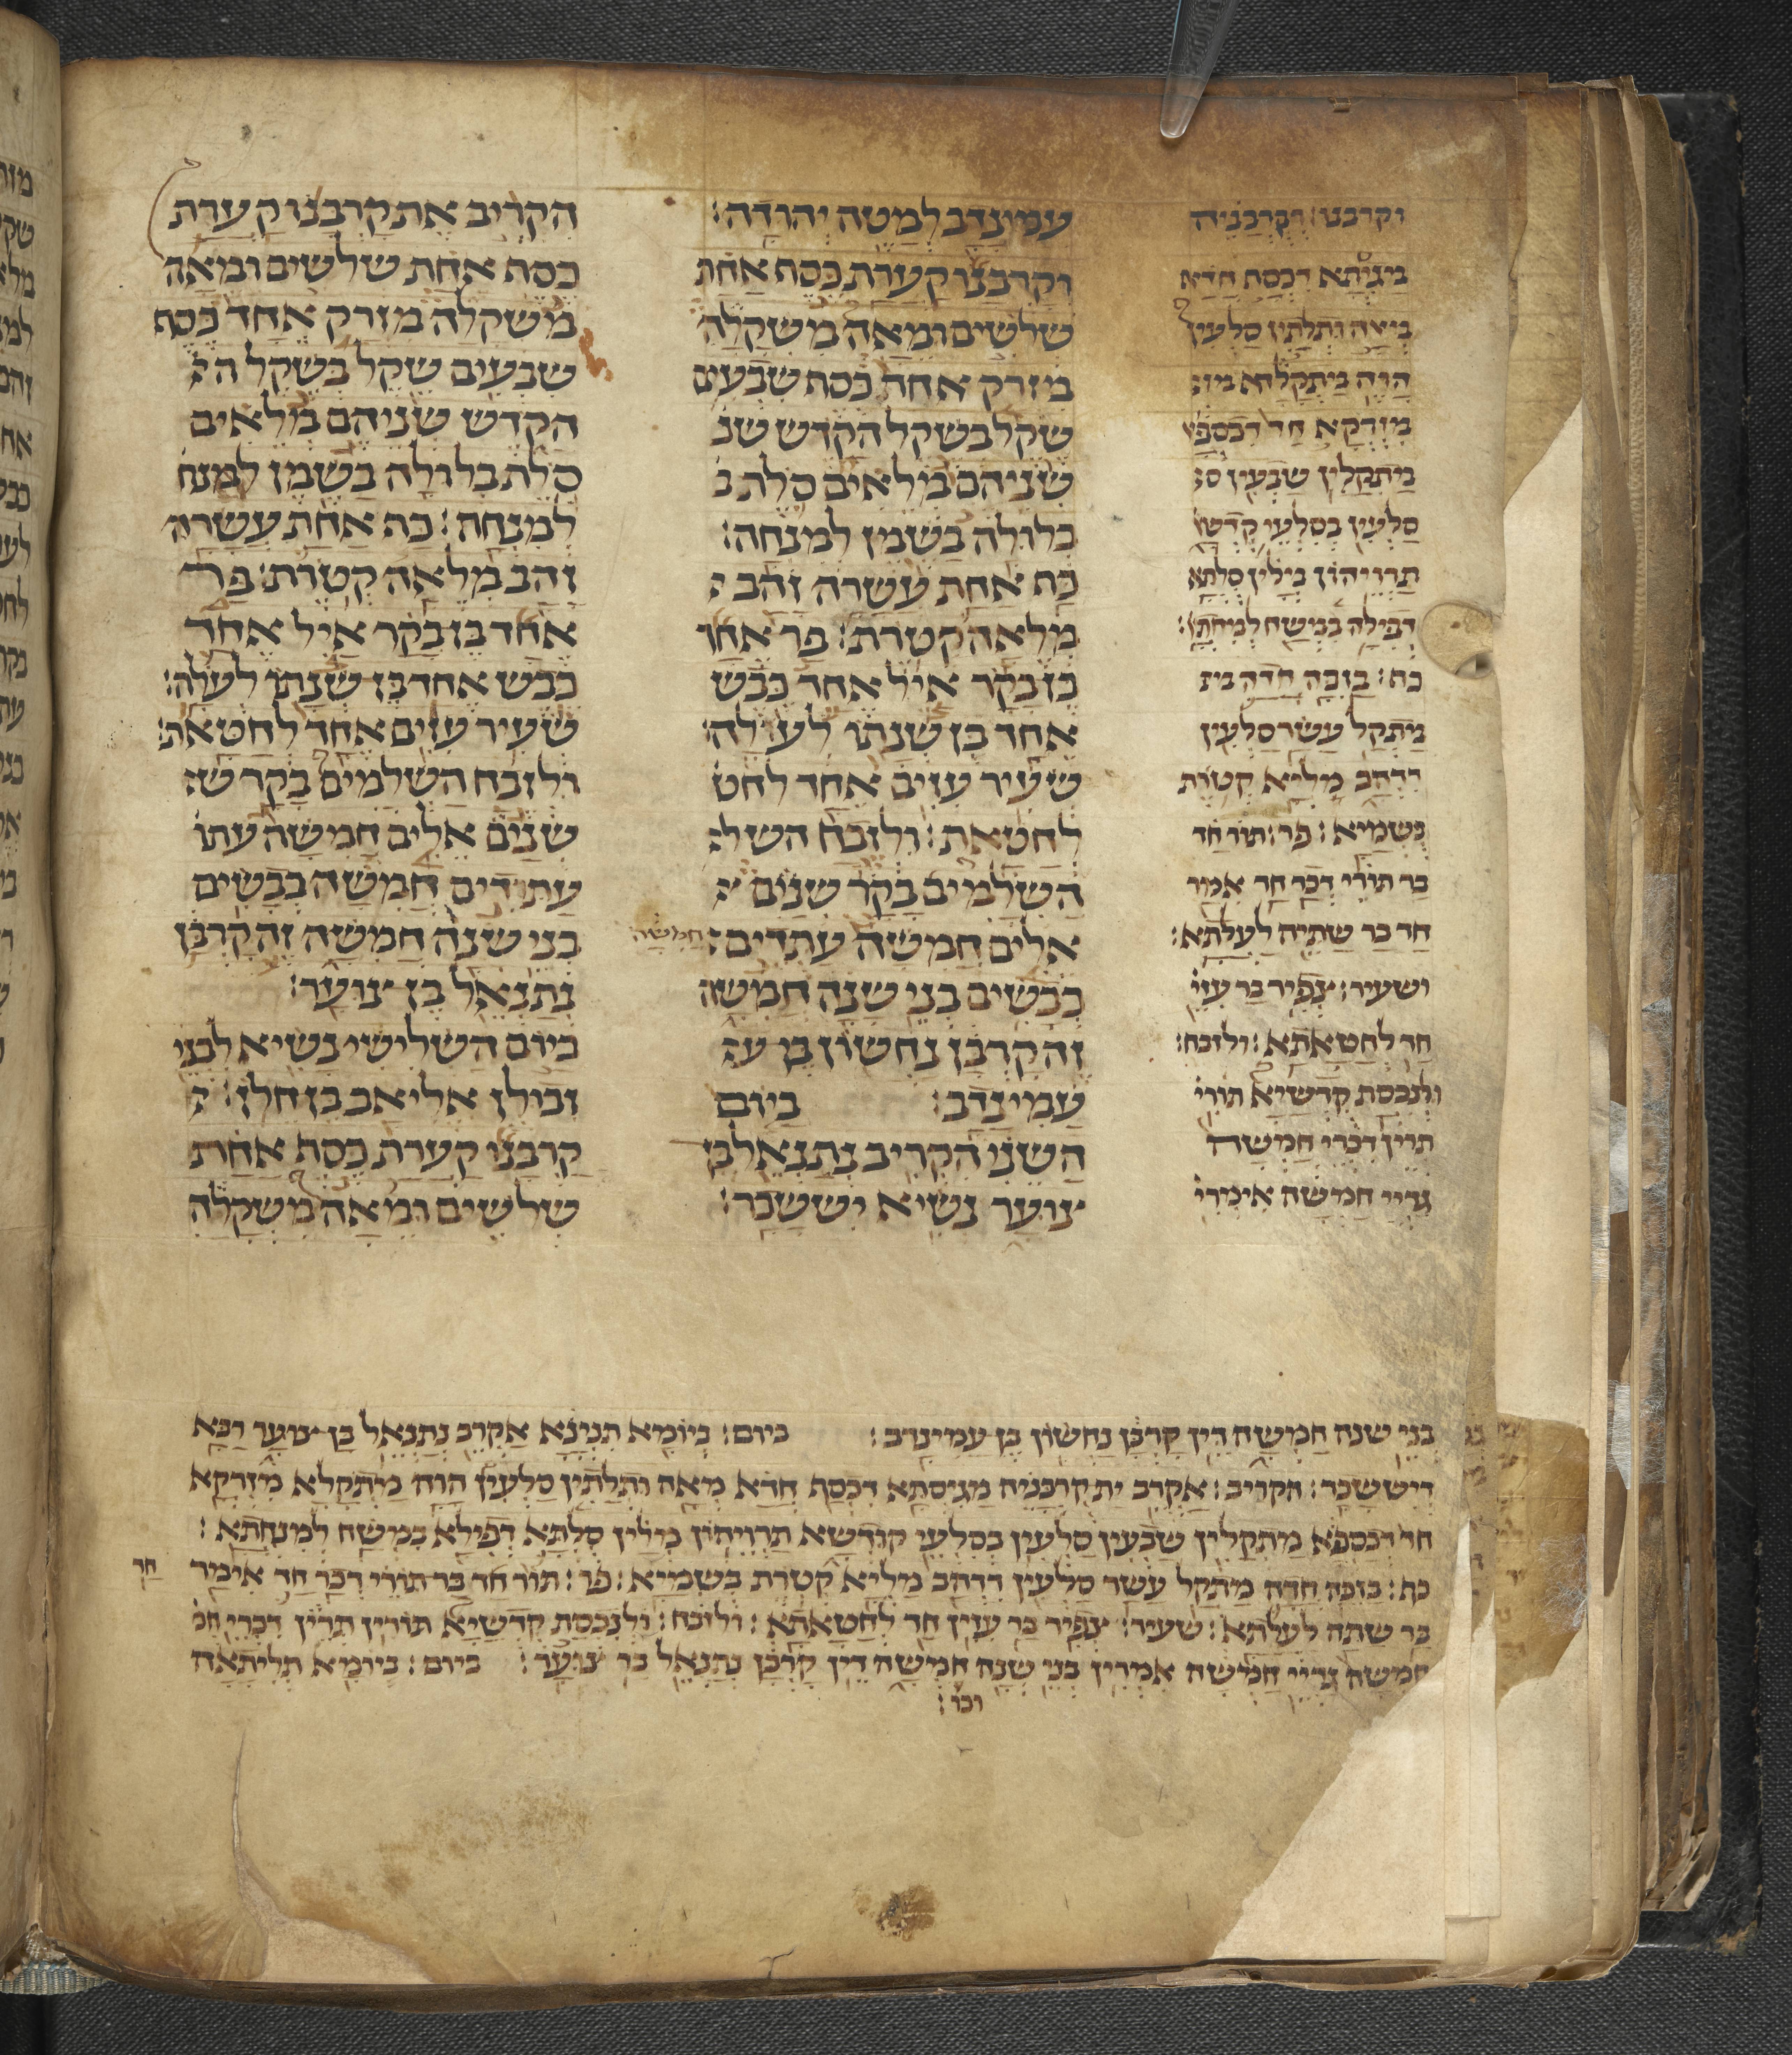 וקרבנו: וקרבניה
מגיסתא דכסף חדא
מאה ותלתין סלעין
הוה מתקלה מז
מזרקא חד דכספא
מתקלין שבעין ס
סלעין בסלעי קדש
תרויהון מלין סלתא
דפילה במשח למנחתא:
כף: בזכה חדה מת
מתקל עשר סלעין
דדהב מליא קטרת
בשמיא: פר: תור חד
בר תורי דכר חד אמר
חד בר שתיה לעלתא:
ושעיר: צפיר בר עזי
חד לחטאתא: ולזבח:
ולנכסת קדשיא תורי
תרין דכרי חמשה
גדיי חמשה אימרי
עמינדב למטה יהודה:
וקרבנו קערת כסף אחת
שלשים ומאה משקלה
מזרק אחד כסף שבעים
שקל בשקל הקדש שנ
שניהם מלאים סלת ב
בלולה בשמן למנחה:
כף אחת עשרה זהב
מלאה קטרת: פר אחד
בן בקר איל אחד כבש
אחד בן שנתו לעולה:
שעיר עזים אחד לחט
לחטאת: ולזבח השל
השלמים בקר שנים
אלים חמשה עתדים חמשה
כבשים בני שנה חמשה
זה קרבן נחשון בן ע
עמינדב: ביום
השני הקריב נתנאל בן
צוער נשיא יששכר:
הקריב את קרבנו קערת
כסף אחת שלשים ומאה
משקלה מזרק אחד כסף
שבעים שקל בשקל ה
הקדש שניהם מלאים
סלת בלולה בשמן למנח
למנחה: כף אחת עשרה
זהב מלאה קטרת: פר
אחד בן בקר איל אחד
כבש אחד בן שנתו לעלה:
שעיר עזים אחד לחטאת:
ולזבח השלמים בקר ש
שנים אלים חמשה עתו
עתודים חמשה כבשים
בני שנה חמשה זה קרבן
נתנאל בן צוער:
ביום השלישי נשיא לבני
זבולן אליאב בן חלן:
קרבנו קערת כסף אחת
שלשים ומאה משקלה
בני שנה חמשה דין קרבן נחשון בן עמינדב: ביום: ביומא תנינא אקריב נתנאל בן צוער רבא
דיששכר: הקריב: אקריב ית קרבניה מגיסתא דכסף חדא מאה ותלתין סלעין הוה מתקלא מזרקא
חד דכספא מתקלין שבעין סלעין בסלעי קודשא תרויהון מלין סלתא דפילא במשח למנחתא:
כף: בזכה חדה מתקל עשר סלעין דדהב מליא קטרת בשמיא: פר: תור חד בר תורי דכר חד אימר חד
בר שתה לעלתא: שעיר: צפיר בר עזין חד לחטאתא: ולזבח: ולנכסת קדשיא תורין תרין דכרין חמ
חמשה גדיי חמשה אמרין בני שנה חמשה דין קרבן נתנאל בר צוער: ביום: ביומא תליתאה
וכו׳: